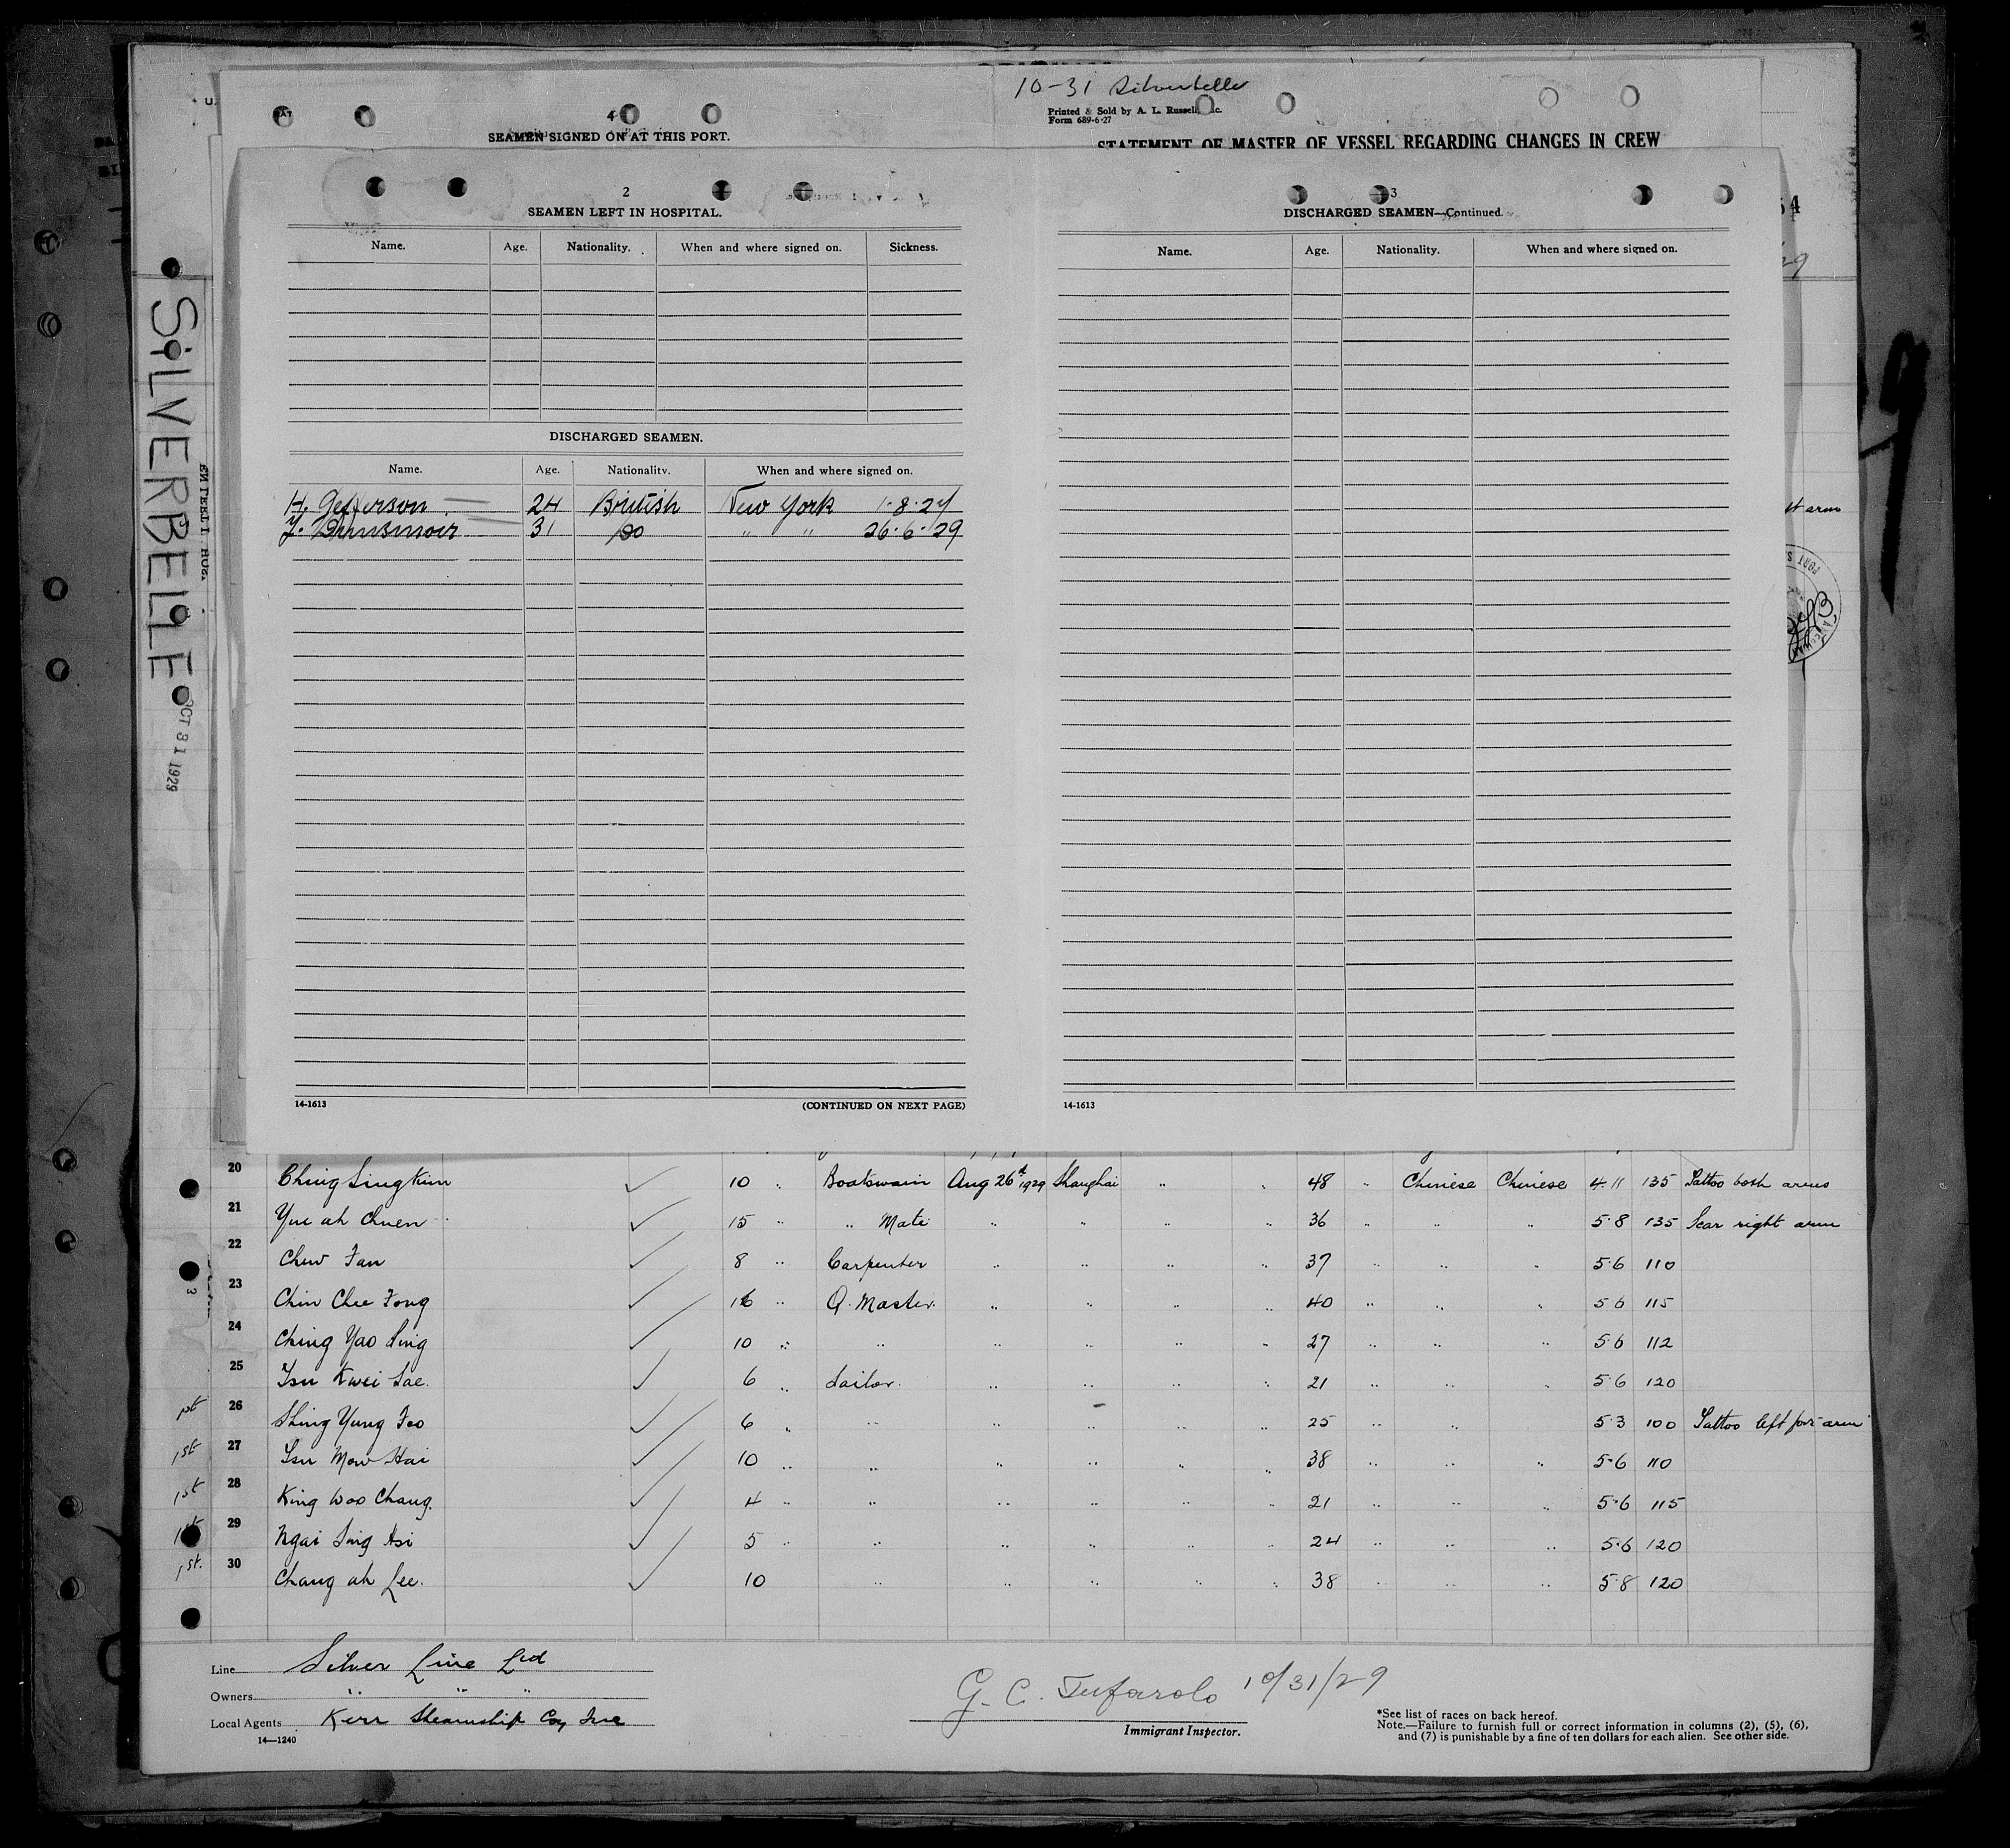 10-31 Silverbelle
Printed & Sold by A. L. Russell, Inc.
Form 689-6-27
4
SEAMEN SIGNED ON AT THIS PORT.
STATEMENT OF MASTER OF VESSEL REGARDING CHANGES IN CREW
2
SEAMEN LEFT IN HOSPITAL.
Name. Age. Nationality. When and where signed on. Sickness.
DISCHARGED SEAMEN.
Name. Age. Nationality. When and where signed on.
H. Jefferson 24 British New York 1·8·27
J. 31 Do " " 26·6·29
14-1613 (CONTINUED ON NEXT PAGE)
3
DISCHARGED SEAMEN—Continued.
Name. Age. Nationality. When and where signed on.
14-1613
SILVERBELLE
OCT 31 1929
20 Ching Sing Kim 10 " Boatswain Aug 26th 1929 Shanghai " " 48 " Chinese Chinese 4.11 135 Tattoo both arms
21 Yue ah Chuen 15 " " Mate " " " " 36 " " " 5·8 135 Scar right arm
22 Chew Fan 8 " Carpenter " " " " 37 " " " 5·6 110
23 Chin Chee Fong 16 " Q. Master. " " " " 40 " " " 5·6 115
24 Ching Yao Sing 10 " " " " " " 27 " " " 5·6 112
25 Tsu Kwei Sae. 6 " Sailor. " " " " 21 " " " 5·6 120
1st 26 Shing Yung Foo 6 " " " " " " 25 " " 5·3 100 Tattoo left fore-arm
1st 27 Tsu Mow Hai 10 " " " " " " 38 " " " 5·6 110
1st 28 King Woo Chang. 4 " " " " " " 21 " " " 5·6 115
1st 29 Ngai Sing Hsi 5 " " " " " " 24 " " " 5·6 120
1st. 30 Chang ah Lee. 10 " " " " " 38 " " " 5·8 120
Line Silver Line Ltd
Owners " " "
Local Agents Kerr Steamship Co, Inc
14—1240
G. C. Tufarolo 10/31/29
Immigrant Inspector.
*See list of races on back hereof.
Note.—Failure to furnish full or correct information in columns (2), (5), (6),
and (7) is punishable by a fine of ten dollars for each alien. See other side.